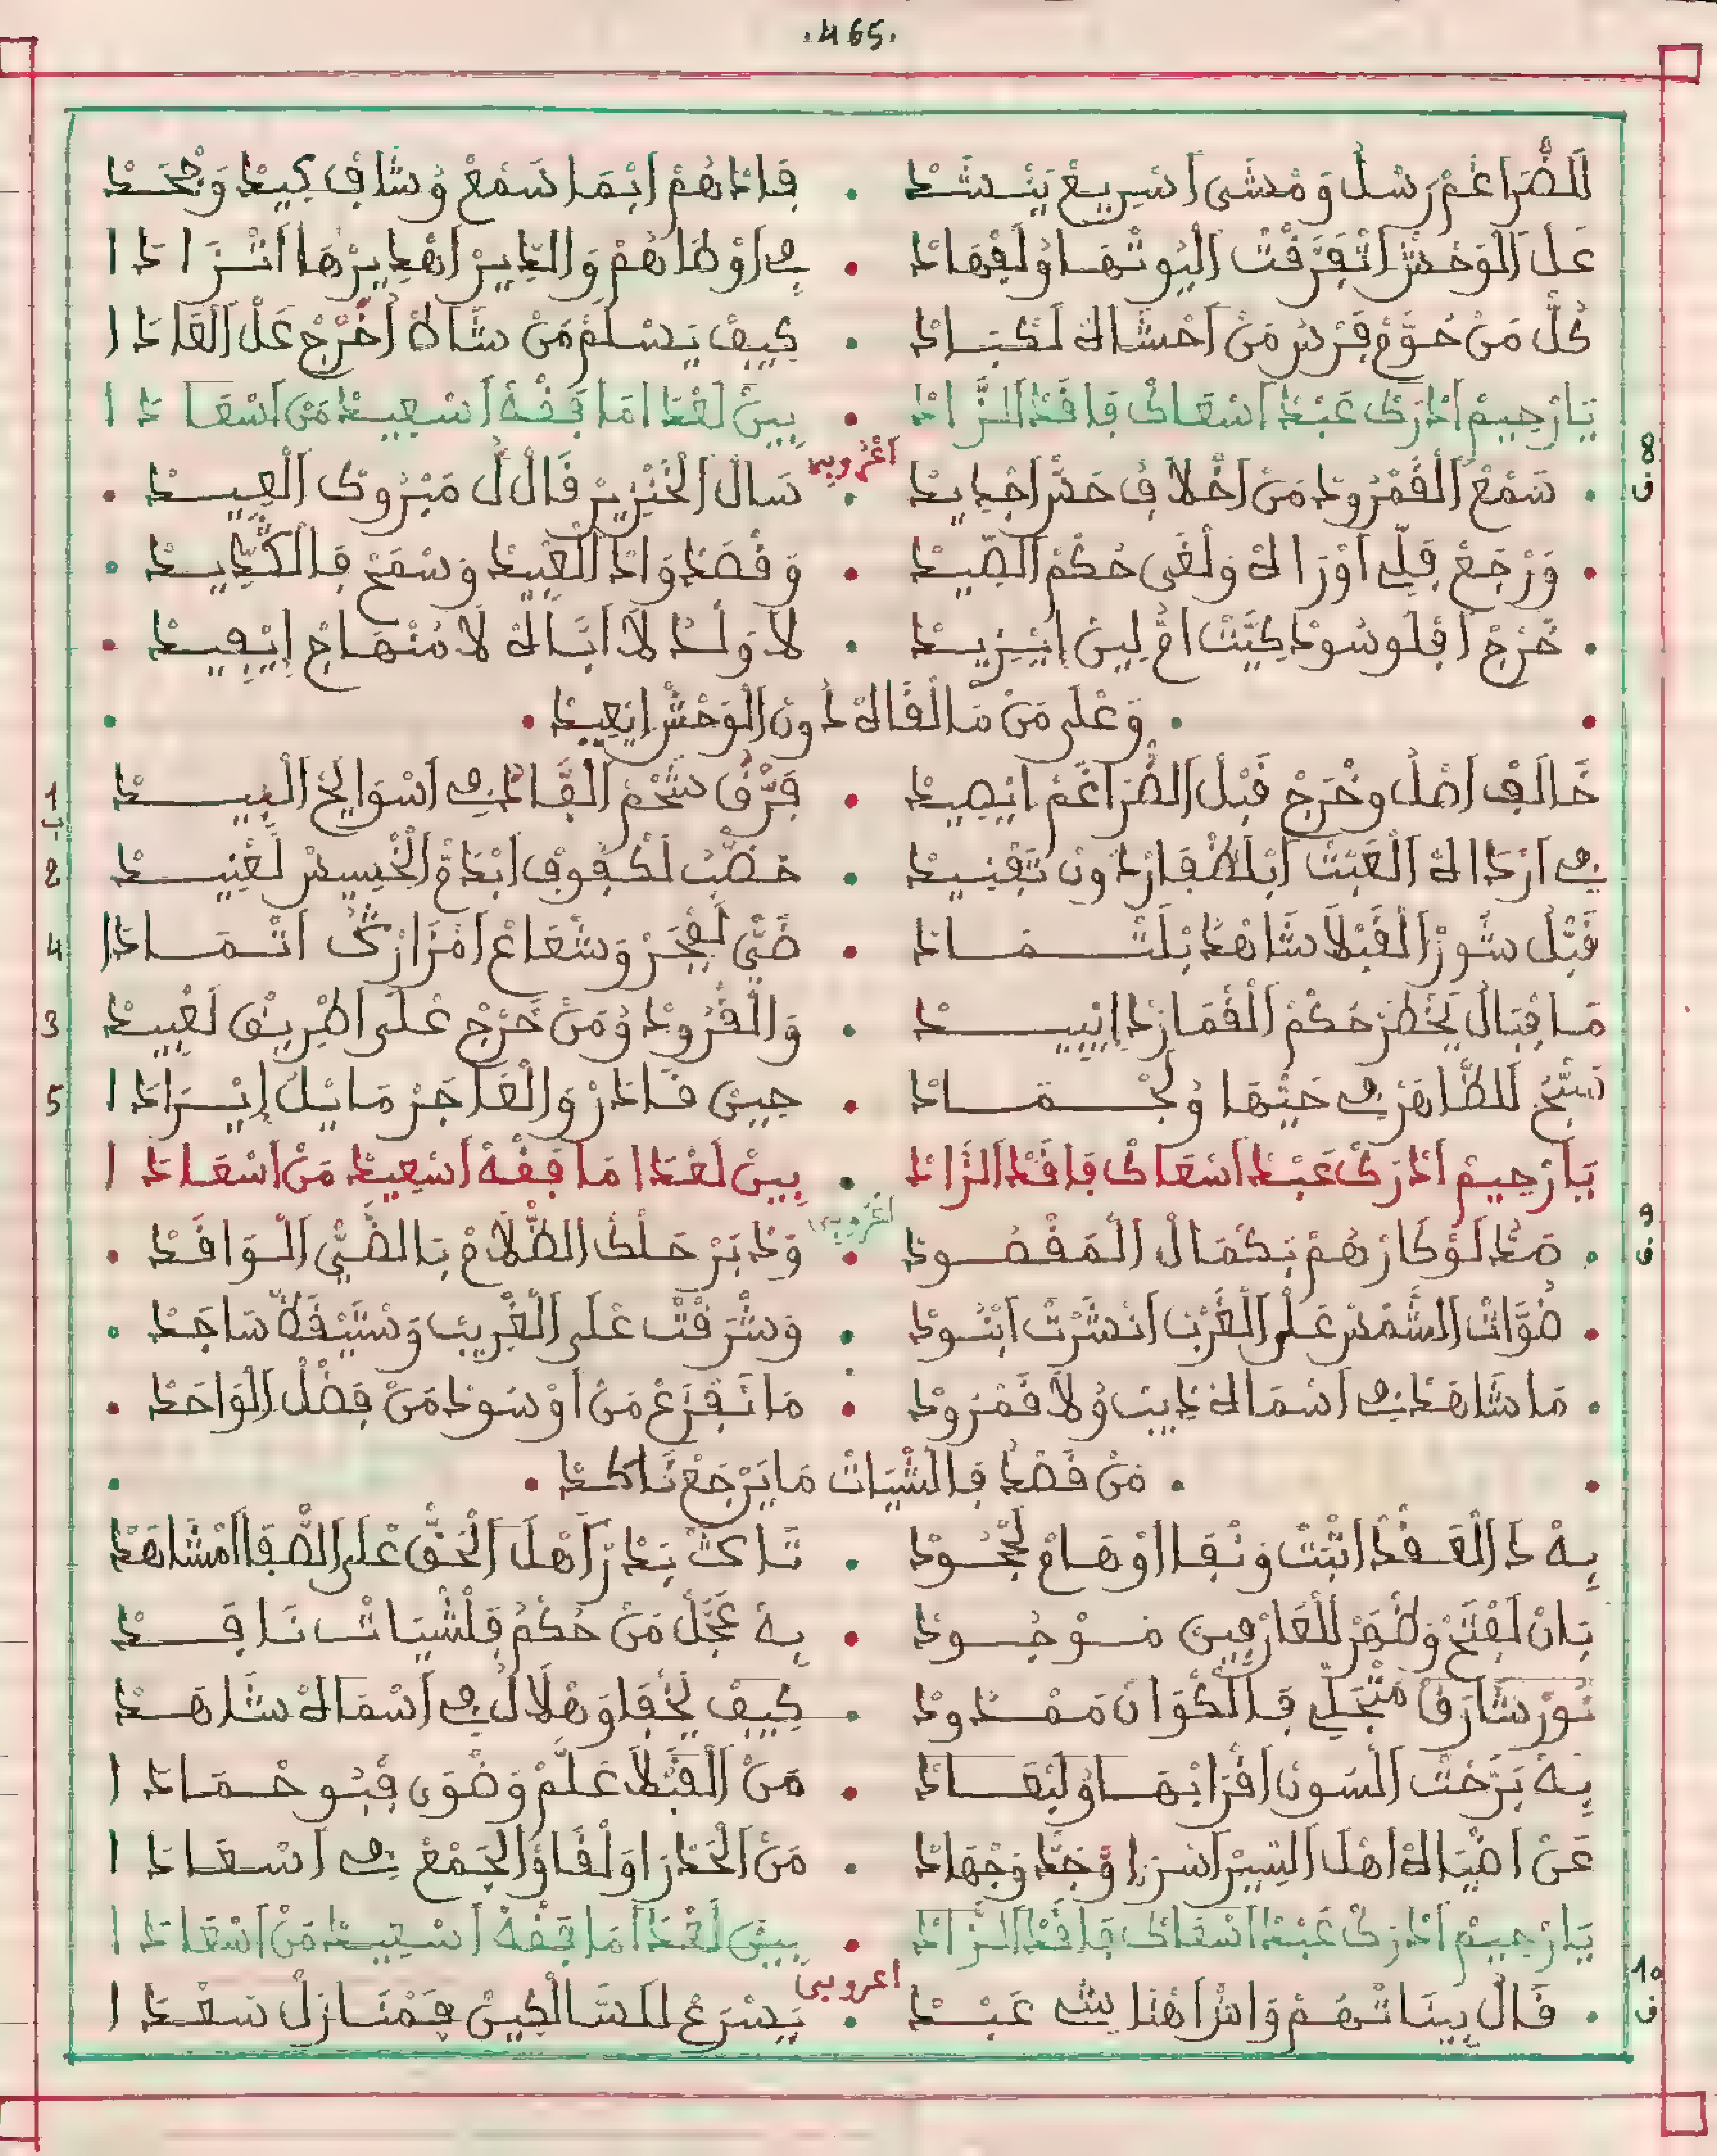 .465.
لَلضَّرَاغَمْ رَسْلُ وَمْشَى اَسْرِيعْ يَنْشَدْ . فِاتَاهُمْ اَبْمَا سَمْعْ وُشَافْ كِيدْ وَجْحَدْ
عَلَ اَلْوَحْشْ اَتْفَرَّقْتْ اَلْبُوتْهَا وُلَفْهَادْ . فِي اَوْطَاهُمْ وَالدِّيرْ اَهْدِيرْهَا اَتْزَادَا
كُلّْ مَنْ حَوَّمْ فَرّْسُ مَنْ اَحْشَاهْ لَكْبَادْ . كِيفْ يَسْلَمْ مَنْ شَاهْ اَخْرَجْ عَلْ اَلْقَادَا
يَا رْحِيمْ اَدْرَكْ عَبْدْ اَسْعَاكْ فَاقَدْ اَلزَّادْ . بِينْ لَعْدَا مَا فَقْهْ اَسْعِيدْ مَنْ اَسْعَادَا
8 ف
اَعْرُوبِي
. سَمْعْ اَلْقَمْرُودْ مَنْ اَخْلَافْ حَسّْ اَجْدِيدْ . سَالْ اَلْخَنْزِيرْ قَالْ لُ مَبْرُوكْ اَلْعِيدْ .
. وَرْجَعْ فِلِّي اَوْرَاهْ وَلْغَى حُكْمْ اَلصِّيدْ . وَقْصَدْ وَادْ اَلْعْبِيدْ وَسْمَحْ فَالْكَّدِيدْ .
. خْرَجْ اَفْلُوسُودْ كِيَّتْ اَمُّ لِينْ اَيْزِيدْ . لَا وَلْدْ لَا اَبَّاهْ لَا مُنْهَاجْ اِيْفِيدْ .
. وَعْلَى مَنْ مَا لْقَاهْ دُونْ اَلْوَحْشْ اِيْعِيدْ .
1 ب
خَالَفْ اَصْلُ وخْرَجْ قَبْلْ اَلضْرَاغَمْ اَيْصِيدْ . فَرَّقْ شَحْمْ اَلْقَّاطْ فِي اَسْوَايَحْ اَلْبِيدْ
2
فِي اَرْدَاهْ اَلْعَبْتْ اَبْلَظْفَارْ دُونْ تَفْنِيدْ . خَضّْبْ لَكْفُوفْ اَبْدَمّْ اَلْخْسِيسْ لَعْنِيدْ
4
قَبّْلْ شُورْ اَلْقَبْلَا شَاهْدْ بَلَثْمَادْ . ضَيّْ لَفْجَرْ وَشْعَاعْ اَمْزَارْكُ اَتْمَادَا
3
مَا فْبَالُ يَخْطَرْ حَكْمْ اَلْقْمَارْ دَ اِيْبِيدْ . وَالْقْرُودْ وُمَنْ خْرَجْ عْلَى اَطْرِيقْ لَعْبِيدْ
5
سَبّحْ لَلظَّاهَرْ فِي حَيّْهَا وُلَجْمَادْ . حِينْ قَادَرْ وَالْعَاجَزْ مَا يْلُ اِيْرَادَا
يَا رْحِيمْ اَدْرَكْ عَبْدْ اَسْعَاكْ فَاقَدْ اَلزَّادْ . بِينْ لَعْدَا مَا فَقْهْ اَسْعِيدْ مَنْ اَسْعَادَا
9 ف
اَعْرُوبِي
. صَدّْ لَوْكَارْهُمْ بَكْمَالْ اَلْمَقْصُودْ . وَدْبَرْ حَلْكْ اَلظّْلَامْ بَالضَّيّْ اَلْوَاقَدْ .
. ضَوَّاتْ اَلشَّمْسْ عَلَى اَلْغَرْبْ اَنْشَرْتْ اَبْنُودْ . وَشْرَقْتْ عْلَى اَلْغْرِيبْ وَسْتَيْقَظْ سَاجَدْ .
. مَا شَاهَدْ فِي اَسْمَاهْ ذِيبْ وُلَا قَمْرُودْ . مَا نَفْزَعْ مَنْ اَوْسُودْ مَنْ فَضْلْ اَلْوَاحَدْ .
. مَنْ قَصْدُ فَالثّْبَاتْ مَا يَرْجَعْ نَاكَدْ .
بِهْ دَ اَلْعَقْدْ اَثْبَتْ وَنْفَا اَوْهَامْ لَجْحُودْ . تَاكْ بَدْرْ اَهْلْ اَلْحَقّْ عْلَى اَلصّْفَا اَمْشَاهَدْ
بَانْ لَفْتَحْ وَظْهَرْ لَلْعَارْفِينْ مَوْجُودْ . بِهْ عَجّْلْ مَنْ حُكْمُ فَلْثْبَاتْ نَافَدْ
نُورْ شَارَقْ مَتْجَلِّي فَالْكْوَانْ مَمْدُودْ . كِيفْ يَخْفَا وَهْلَالُ فِي اَسْمَاهْ شَاهَدْ
بِهْ بَرْحَتْ اَلسُّونْ اَقْرَابْهَا وُلَبْعَادْ . مَنْ اَلْقَبْلَا عَلَّمْ وَضْوَى قْبُو حَمَادَا
عَنْ اَضْيَاهْ اَهْلْ اَلسِّيرْ اَسْرَا وُجَدّْ وَجْهَادْ . مَنْ اَلْحَدْرَا وَلْقَاوْ اَلْجَمْعْ فِي اَسْعَادَا
يَا رْحِيمْ اَدْرَكْ عَبْدْ اَسْعَاكْ فَاقَدْ اَلزَّادْ . بِينْ لَعْدَا مَا فَقْهْ اَسْعِيدْ مَنْ اَسْعَادَا
10 ف
اعروبي
. قَالْ بِيبَاتْهُمْ وَاشْ اَهْنَا شِي عَبْدْ . يَسْرَعْ لَلسَّالْكِينْ فَمْنَازَلْ سَعْدَا